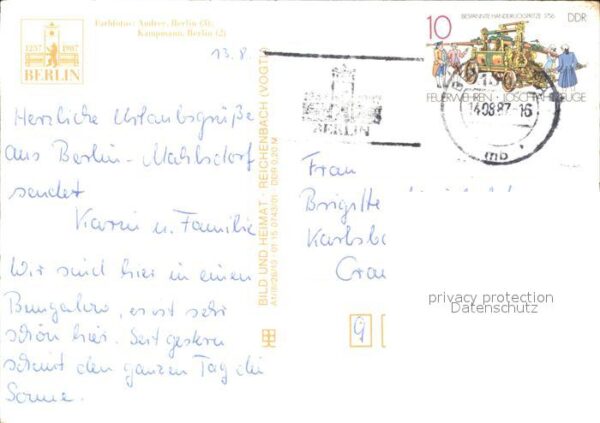 Farbfotos: Andree, Berlin (3);
Kampmann, Berlin (2)
1237 1987
BERLIN
13.8.
Herzliche Urlaubsgrüße
aus Berlin-Mahlsdorf
sendet
Karin u. Familie
Wir sind hier in einem
Bungalow, es ist sehr
schön hier. Seit gestern
scheint den ganzen Tag die
Sonne.
BILD UND HEIMAT · REICHENBACH (VOGTL)
01 15 0743/01 · DDR 0,20 M
BESPANNTE HANDDRUCKSPRITZE 1756
DDR
10
FEUERWEHREN · LÖSCHFAHRZEUGE
BERLIN
14.08.87-16
mb
Frau
Brigitte
Karlsba
9
privacy protection
Datenschutz